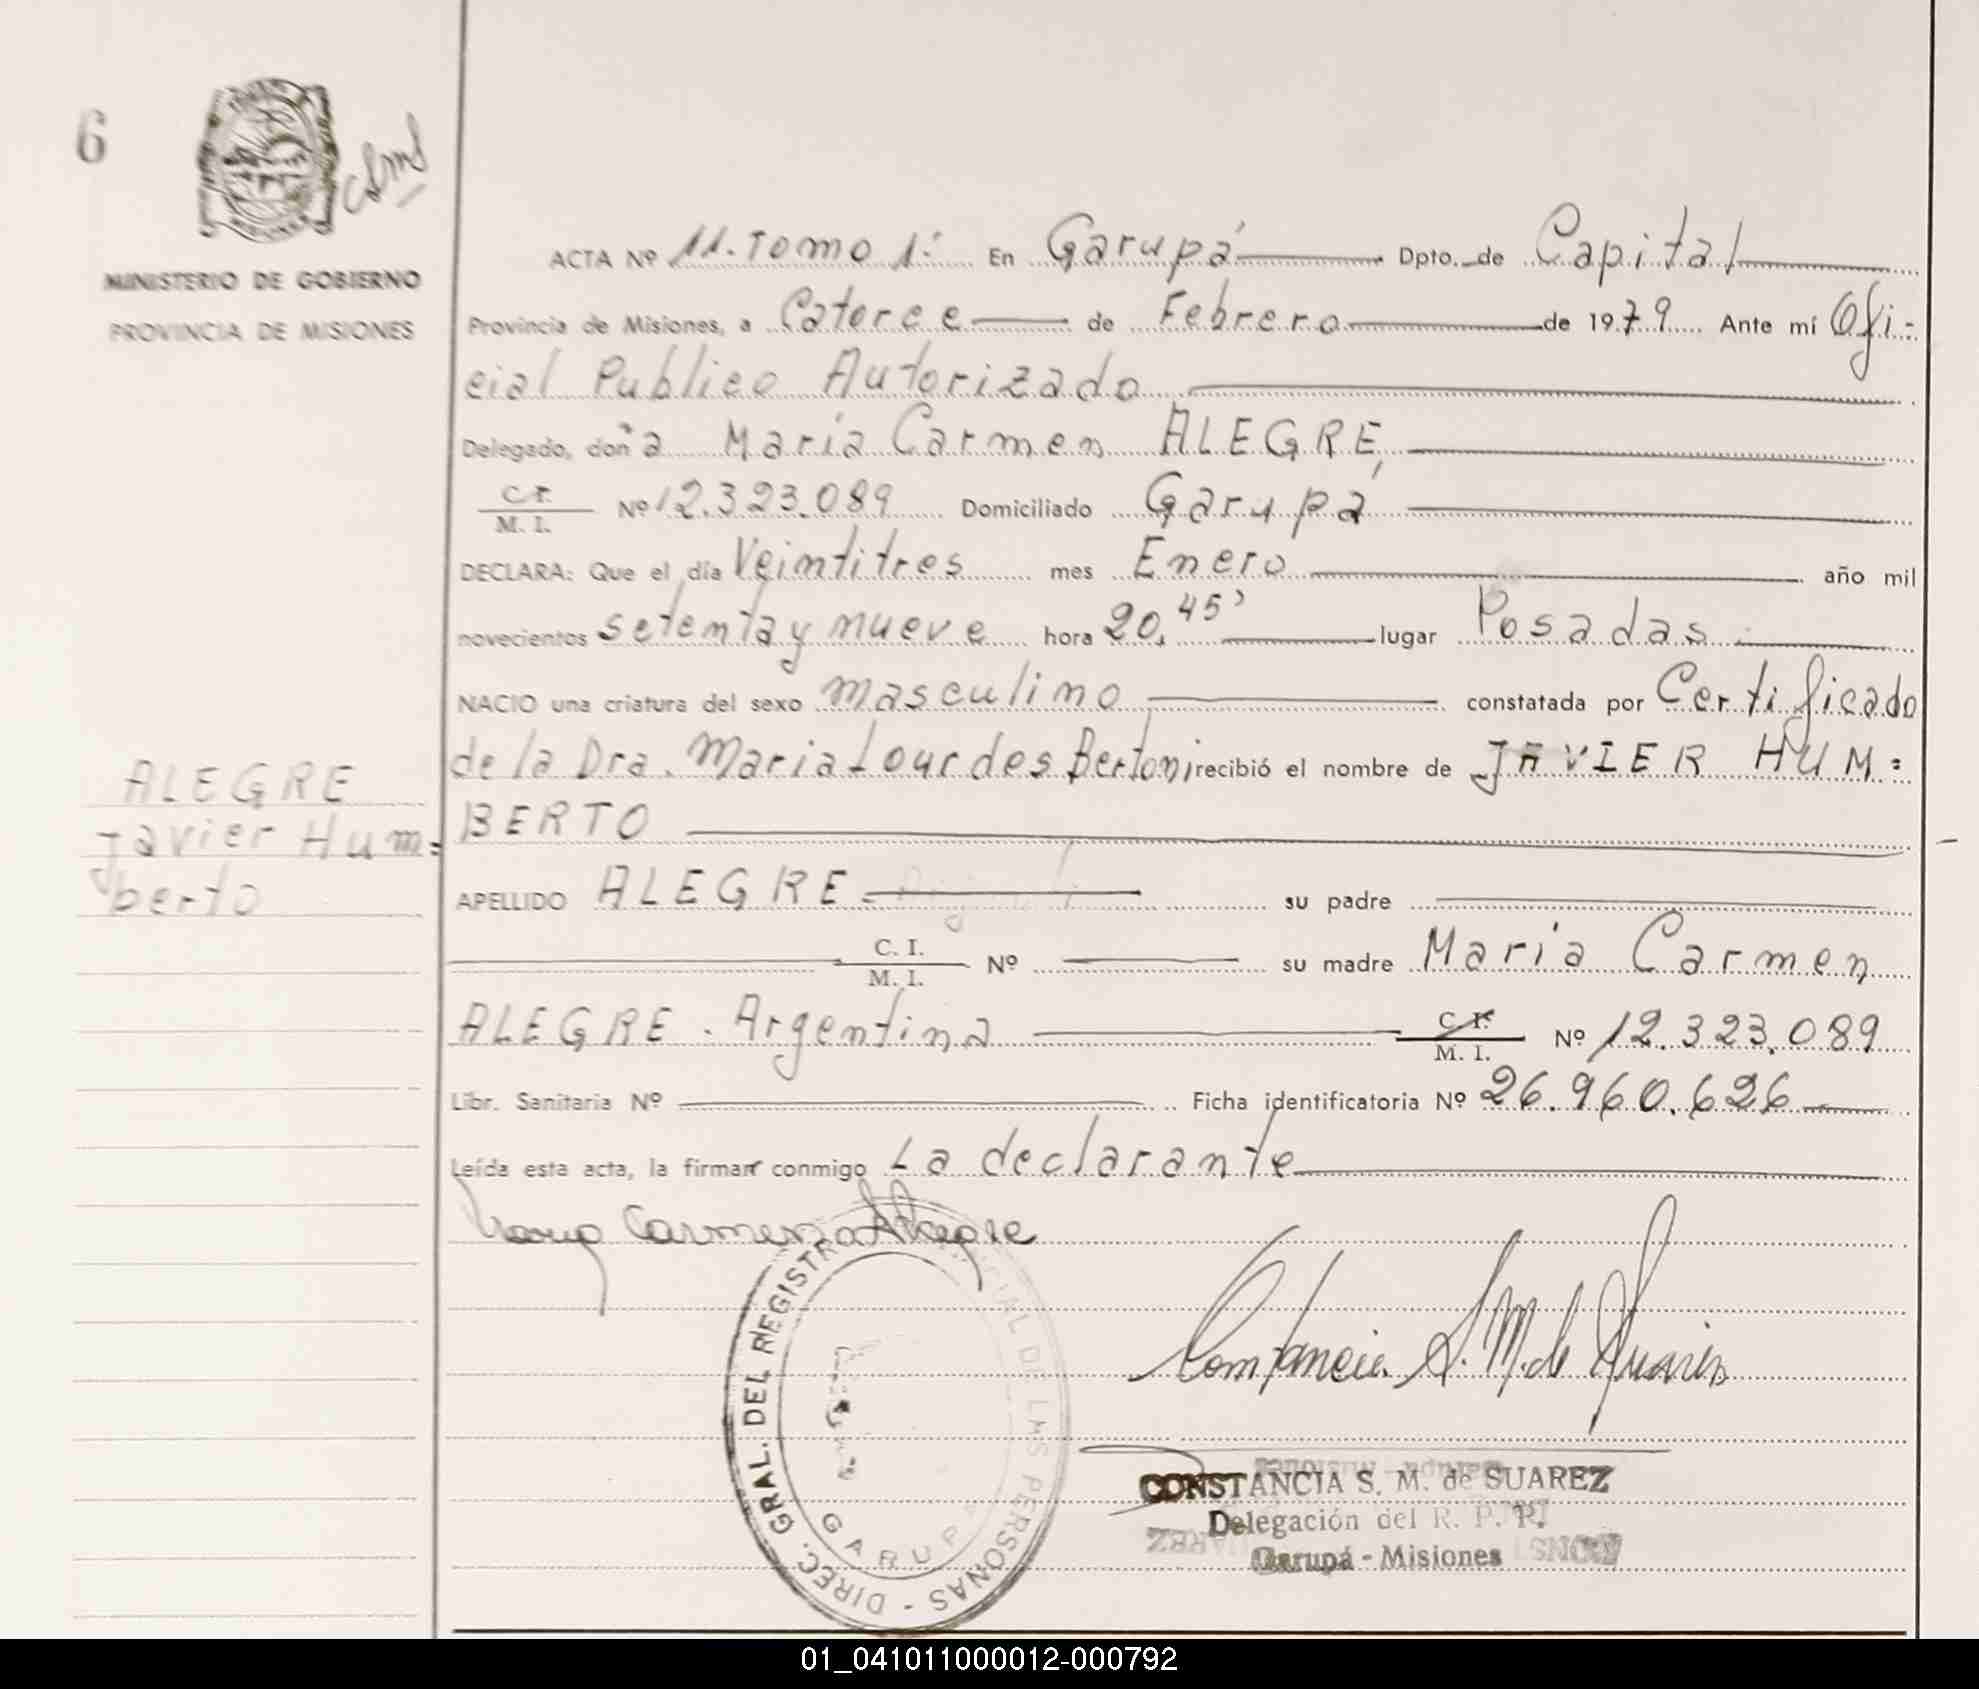 6
MINISTERIO DE GOBIERNO
PROVINCIA DE MISIONES
ACTA Nº 11. Tomo 1º En Garupá Dpto. de Capital
Provincia de Misiones, a Catorce de Febrero de 1979 Ante mí Ofi=
cial Publico Autorizado
Delegado, doña María Carmen ALEGRE,
C. I.
M. I. Nº 12.323.089 Domiciliado Garupá
DECLARA: Que el día Veintitres mes Enero año mil
novecientos setenta y nueve hora 20,45' lugar Posadas
NACIO una criatura del sexo masculino constatada por Certificado
de la Dra. Maria Lourdes Bertoni recibió el nombre de JAVIER HUM=
BERTO
ALEGRE
Javier Hum=
berto
APELLIDO ALEGRE su padre
C. I.
M. I. Nº su madre María Carmen
ALEGRE. Argentina C. I.
M. I. Nº 12.323.089
Libr. Sanitaria Nº Ficha identificatoria Nº 26.960.626
Leída esta acta, la firman conmigo La declarante
Carmen Alegre
Constancia S. M. de Suarez
DIREC. GRAL. DEL REGISTRO PROVINCIAL DE LAS PERSONAS -
GARUPA
CONSTANCIA S. M. de SUAREZ
Delegación del R. P. P.
Garupá - Misiones
01_041011000012-000792